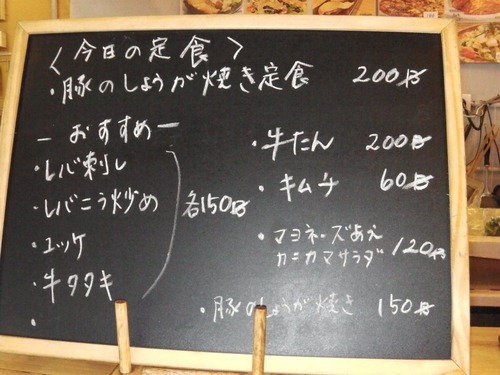 〈今日の定食〉
・豚のしょうが焼き定食 200B
ーおすすめー
・レバ刺し
・レバこう炒め
・ユッケ
・牛タタキ
各150B
・
・牛たん 200B
・キムチ 60B
・マヨネーズあえ
カニカマサラダ 120B
・豚のしょうが焼き 150B